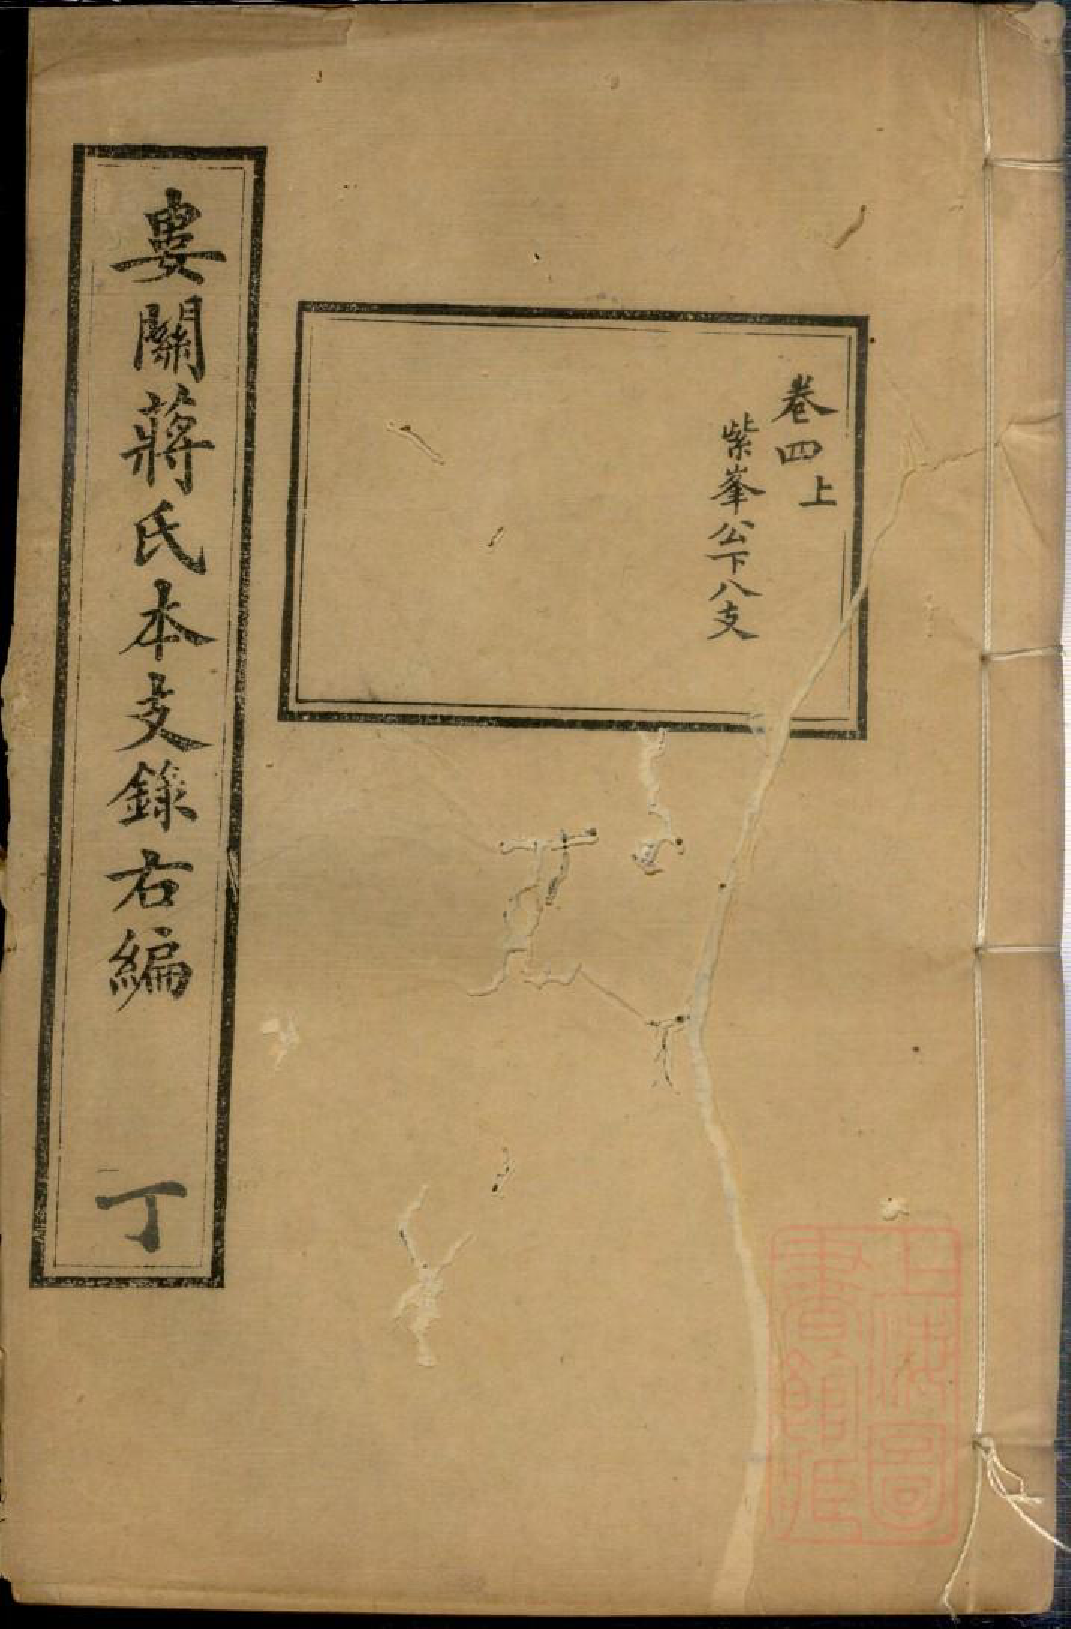 卷四上
紫峯公下八支
婁關蔣氏本支錄右編 丁
上海圖書館藏